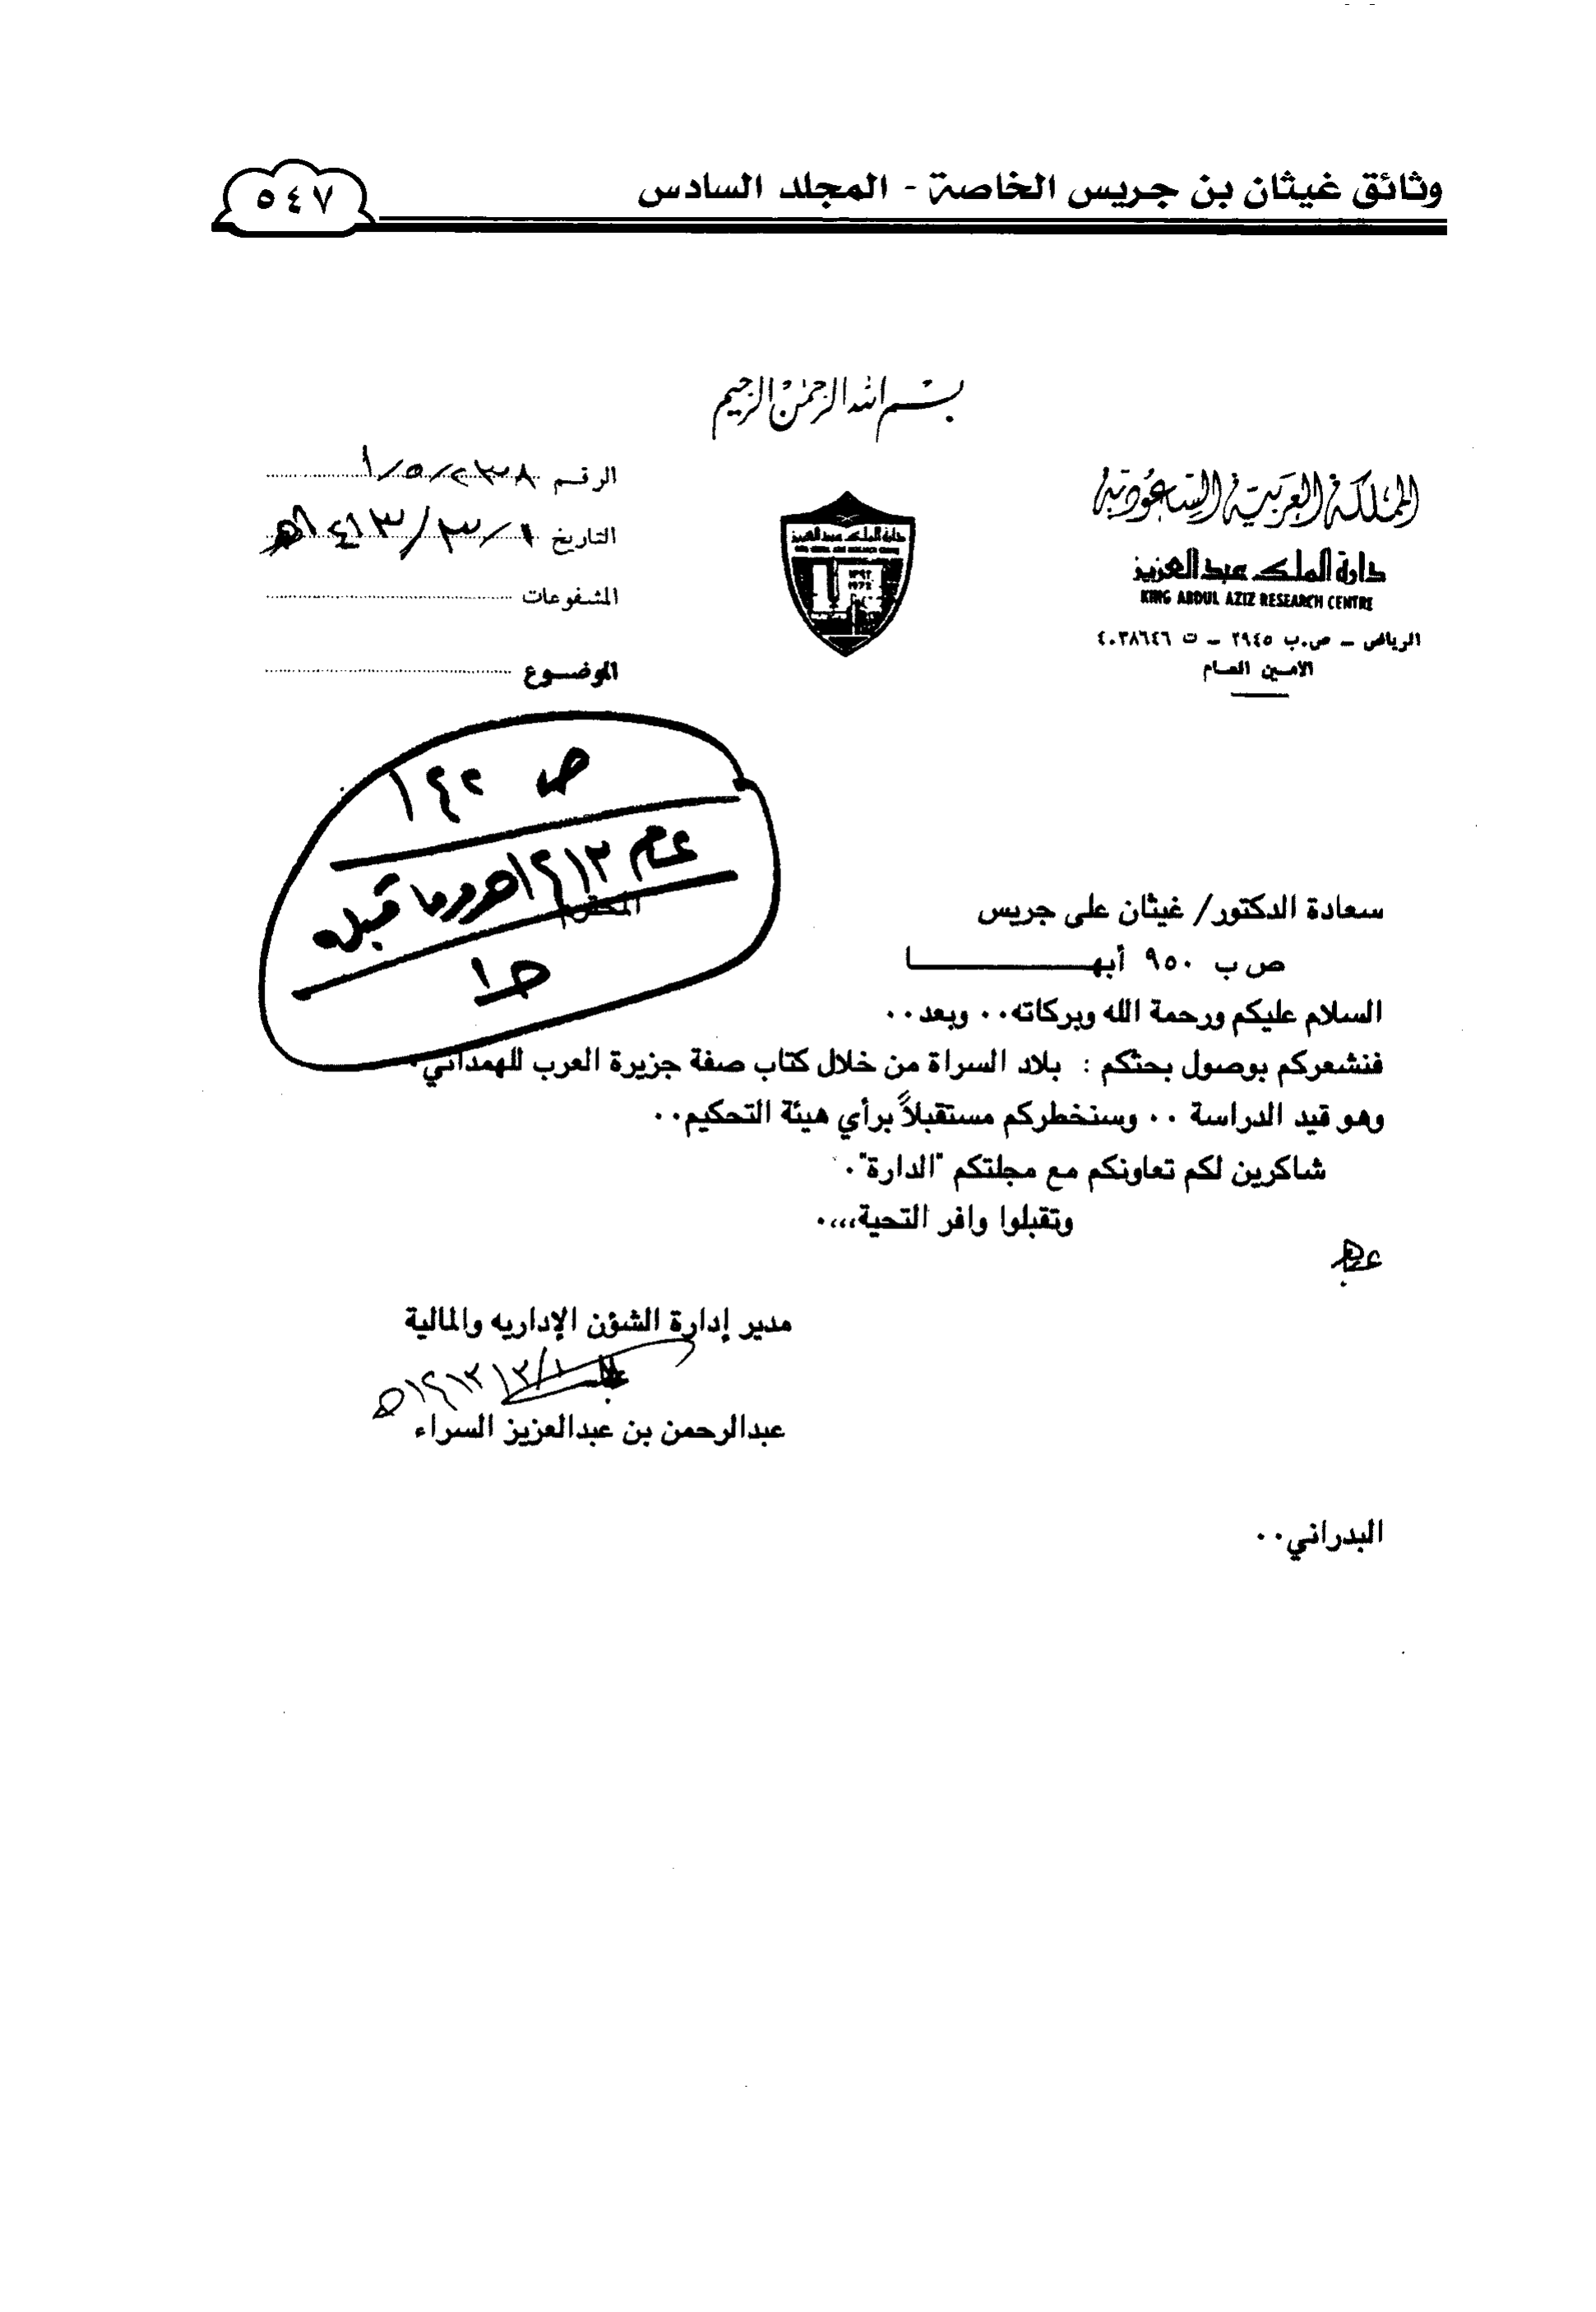 وثائق غيثان بن جريس الخاصة - المجلد السادس
٥٤٧
بسم الله الرحمن الرحيم
المملكة العربية السعودية
دارة الملك عبد العزيز
KING ABDUL AZIZ RESEARCH CENTRE
الرياض - ص.ب ٢٩٤٥ - ت ٤٠٣٨٦٤٦
الامين العام
دارة الملك عبد العزيز
١٣٩٢
١٩٧٢
الرقم ١/٥/٢٣٨
التاريخ ١/٣/١٤١٣هـ
المشفوعات
الموضوع
ص ١٤٢
عام ١٤١٣هـ وما قبله
جـ١
سعادة الدكتور/ غيثان على جريس
المحترم
ص ب ٩٥٠ أبهــــــا
السلام عليكم ورحمة الله وبركاته.. وبعد..
فنشعركم بوصول بحثكم : بلاد السراة من خلال كتاب صفة جزيرة العرب للهمداني.
وهو قيد الدراسة .. وسنخطركم مستقبلاً برأي هيئة التحكيم..
شاكرين لكم تعاونكم مع مجلتكم "الدارة".
وتقبلوا وافر التحية،،،.
مدير إدارة الشؤن الإداريه والمالية
١/٣/١٤١٣هـ
عبدالرحمن بن عبدالعزيز السراء
البدراني..